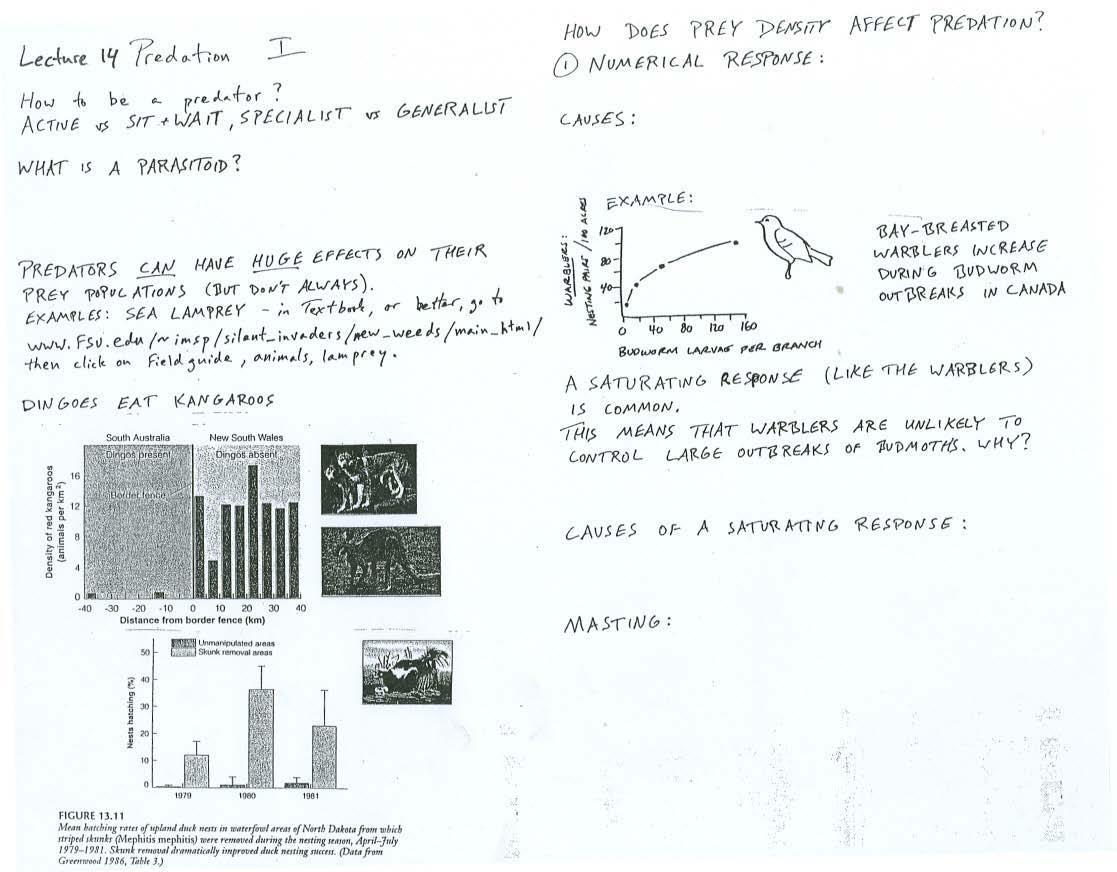 Lecture 14 Predation I
How to be a predator?
ACTIVE vs SIT + WAIT, SPECIALIST vs GENERALIST
WHAT IS A PARASITOID?
PREDATORS CAN HAVE HUGE EFFECTS ON THEIR
PREY POPULATIONS (BUT DON'T ALWAYS).
EXAMPLES: SEA LAMPREY - in Textbook, or better, go to
www.fsu.edu/~imsp/silent_invaders/new_weeds/main_html/
then click on Field guide, animals, lamprey.
DINGOES EAT KANGAROOS
South Australia New South Wales
Dingos present Dingos absent
Border fence
Density of red kangaroos
(animals per km²)
16
12
8
4
0
-40 -30 -20 -10 0 10 20 30 40
Distance from border fence (km)
Unmanipulated areas
Skunk removal areas
Nests hatching (%)
50
40
30
20
10
0
1979 1980 1981
FIGURE 13.11
Mean hatching rates of upland duck nests in waterfowl areas of North Dakota from which
striped skunks (Mephitis mephitis) were removed during the nesting season, April–July
1979–1981. Skunk removal dramatically improved duck nesting success. (Data from
Greenwood 1986, Table 3.)
HOW DOES PREY DENSITY AFFECT PREDATION?
① NUMERICAL RESPONSE:
CAUSES:
EXAMPLE:
WARBLERS:
NESTING PAIRS / 100 ACRES
120
80
40
0 40 80 120 160
BUDWORM LARVAE PER BRANCH
BAY-BREASTED
WARBLERS INCREASE
DURING BUDWORM
OUTBREAKS IN CANADA
A SATURATING RESPONSE (LIKE THE WARBLERS)
IS COMMON.
THIS MEANS THAT WARBLERS ARE UNLIKELY TO
CONTROL LARGE OUTBREAKS OF BUDMOTHS. WHY?
CAUSES OF A SATURATING RESPONSE:
MASTING: